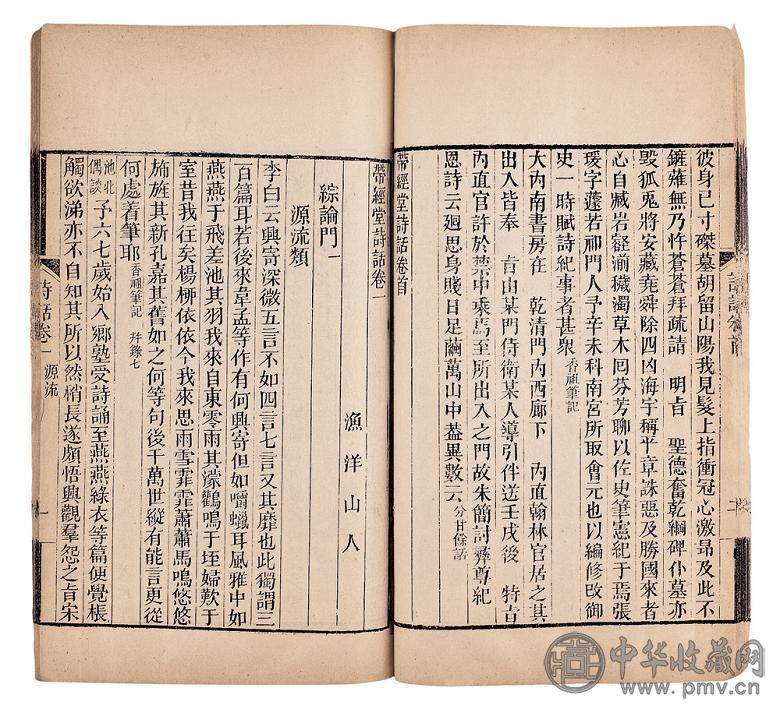 彼身已寸磔墓胡留山陽我見髮上指衝冠心激昻及此不
鏟薙無乃忤蒼蒼拜疏請 明旨 聖德奮乾綱碑仆墓亦
毀狐兎將安藏堯舜除四凶海宇稱平章誅惡及勝國來者
心自臧岩壑湔穢濁草木回芬芳聊以佐史筆憲紀于焉張
瑗字蘧若祁門人予辛未科南宮所取會元也以編修改御
史一時賦詩紀事者甚衆香祖筆記
大內南書房在 乾清門內西廊下 內直翰林官居之其
出入皆奉 旨由某門侍衛某人導引伴送壬戌後 特旨
內直官許於禁中乗馬至所出入之門故朱簡討彝尊紀
恩詩云廻思身賤日足繭萬山中葢異數云分甘餘話
詩話卷首
帶經堂詩話卷首
帶經堂詩話卷一
漁洋山人
綜論門一
源流類
李白云興寄深微五言不如四言七言又其靡也此獨謂三
百篇耳若後來韋孟等作有何興寄但如嚼蠟耳風雅中如
燕燕于飛差池其羽我來自東零雨其濛鸛鳴于垤婦歎于
室昔我往矣楊柳依依今我來思雨雪霏霏蕭蕭馬鳴悠悠
旆旌其新孔嘉其舊如之何等句後千萬世縱有能言更從
何處着筆耶香祖筆記 幷錄七
池北偶談予六七歲始入鄉塾受詩誦至燕燕綠衣等篇便覺棖
觸欲涕亦不自知其所以然稍長遂頗悟興觀羣怨之旨宋
詩話卷一 源流 一
中华收藏网
www.pmv.cn